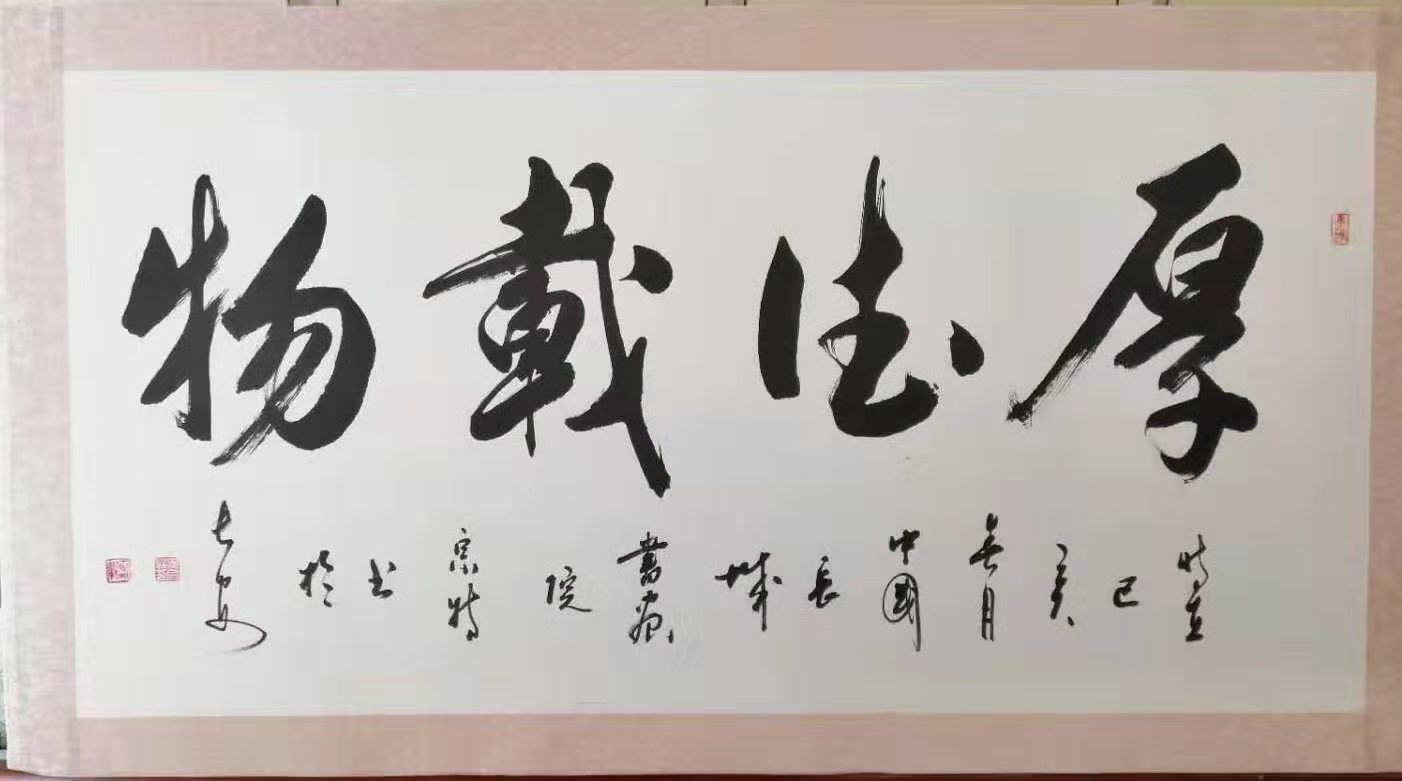 厚德載物
時在己亥春月中國長城書畫院宗特書於長安